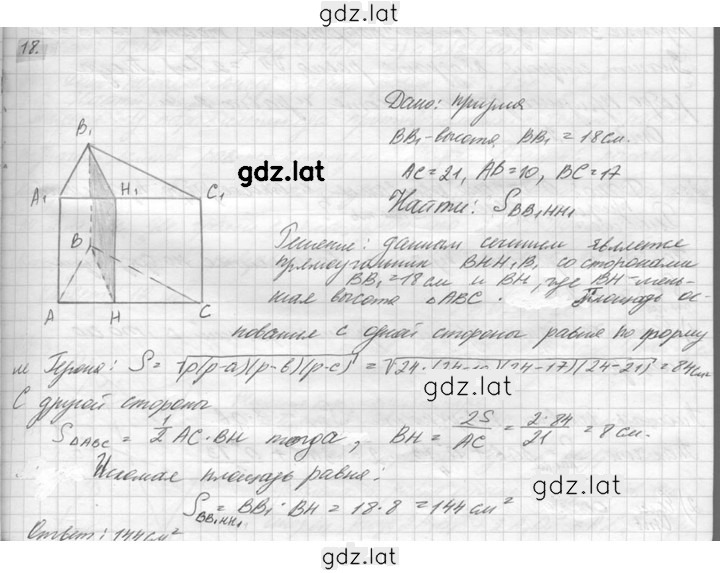 gdz.lat
18.
Дано: призма
BB₁-высота, BB₁=18см.
AC=21, AB=10, BC=17
gdz.lat
Найти: S BB₁HH₁
B₁
A₁ H₁ C₁
B
A H C
Решение: данным сечением является
прямоугольник BHH₁B₁ со сторонами
BB₁=18см и BH, где BH-мень-
шая высота △ABC. Площадь ос-
нования с одной стороны равна по форму
ле Герона: S=√p(p-a)(p-b)(p-c) = √24·(24-10)(24-17)(24-21) = 84см
gdz.lat
С другой стороны
S△ABC = 1/2 AC·BH тогда, BH = 2S/AC = 2·84/21 = 8см.
Искомая площадь равна:
gdz.lat
S BB₁HH₁ = BB₁·BH = 18·8 = 144см²
Ответ: 144см²
gdz.lat